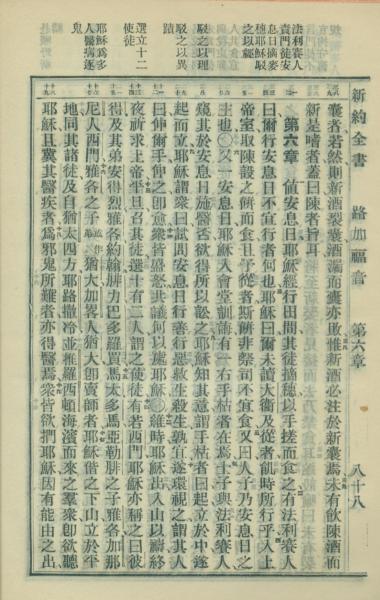 新約全書 路加福音 第六章 八十八
法利賽人
責門徒安
息日摘麥
穗耶穌駁
之以經
駁之以理
駁之以異
蹟
選立十二
使徒
耶穌爲多
人醫病逐
鬼
囊者若然則新酒裂囊酒漏而囊亦敗惟新酒必注於新囊焉未有飲陳酒而
新是嗜者蓋曰陳者旨耳
第六章 值安息日耶穌經行田間其徒摘穗以手搓而食之有法利賽人
曰爾行安息日不宜行者何也耶穌曰爾未讀大衞及從者飢時所行乎入上
帝室取陳設之餅而食且予從者斯餅非祭司不宜食又曰人子乃安息日之
主也〇又一安息日耶穌入會堂訓誨有一右手枯者在焉士子與法利賽人
窺其於安息日施醫否欲得所以訟之耶穌知其意謂手枯者曰起立於中遂
起而立耶穌謂衆曰試問安息日行善行惡救生殺生孰宜遂環視之謂其人
曰伸爾手伸之卽愈衆皆盛怒共議何以處耶穌〇維時耶穌出入山以禱終
夜祈求上帝平旦召其徒選十有二人謂之使徒有若西門耶穌亦稱之曰彼
得及其弟安得烈雅各約翰腓力巴多羅買馬太多馬亞勒腓之子雅各加那
尼人西門雅各之子猶大加畧人猶大卽賣師者耶穌偕之下山立於平
地同其諸徒及自猶太四方耶路撒冷並推羅西頓海濱而來之羣衆卽欲聽
耶穌且冀其醫疾者爲邪鬼所難者亦得醫焉衆皆欲捫耶穌因有能由之出